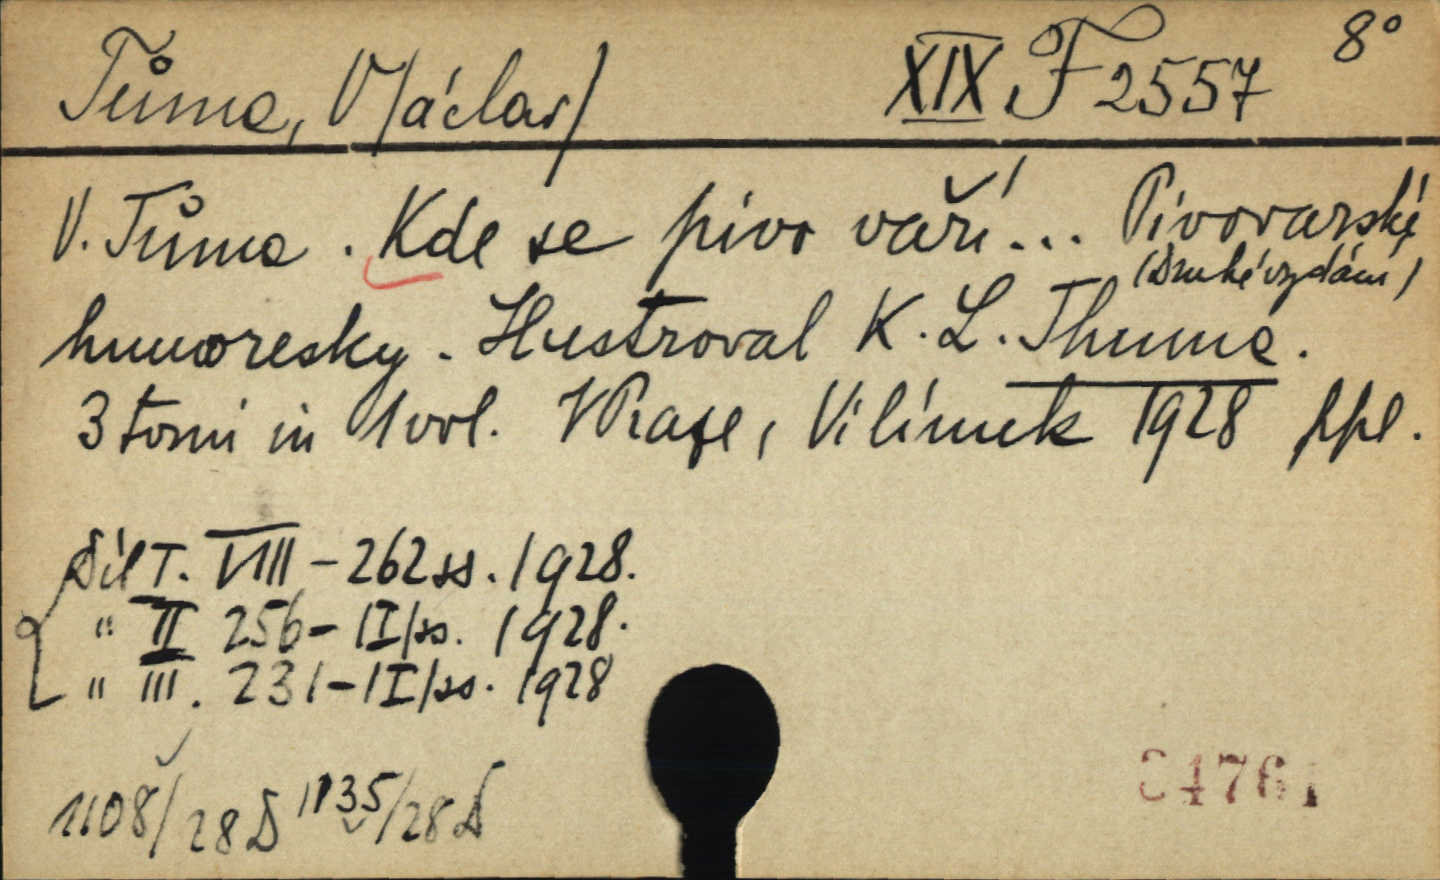 Tůma, V/áclav/ XIX F 2557 8°
V. Tůma. Kde se pivo vaří... Pivovarské
(Druhé vydání)
humoresky. Ilustroval K. L. Thuma.
3 tomi in 1 vol. V Praze, Vilímek 1928 ppl.
Díl I. VIII - 262 ss. 1928.
" II 256 - /I/ ss. 1928.
" III. 231 - /I/ ss. 1928
1108/28 D 1135/28 D
84761